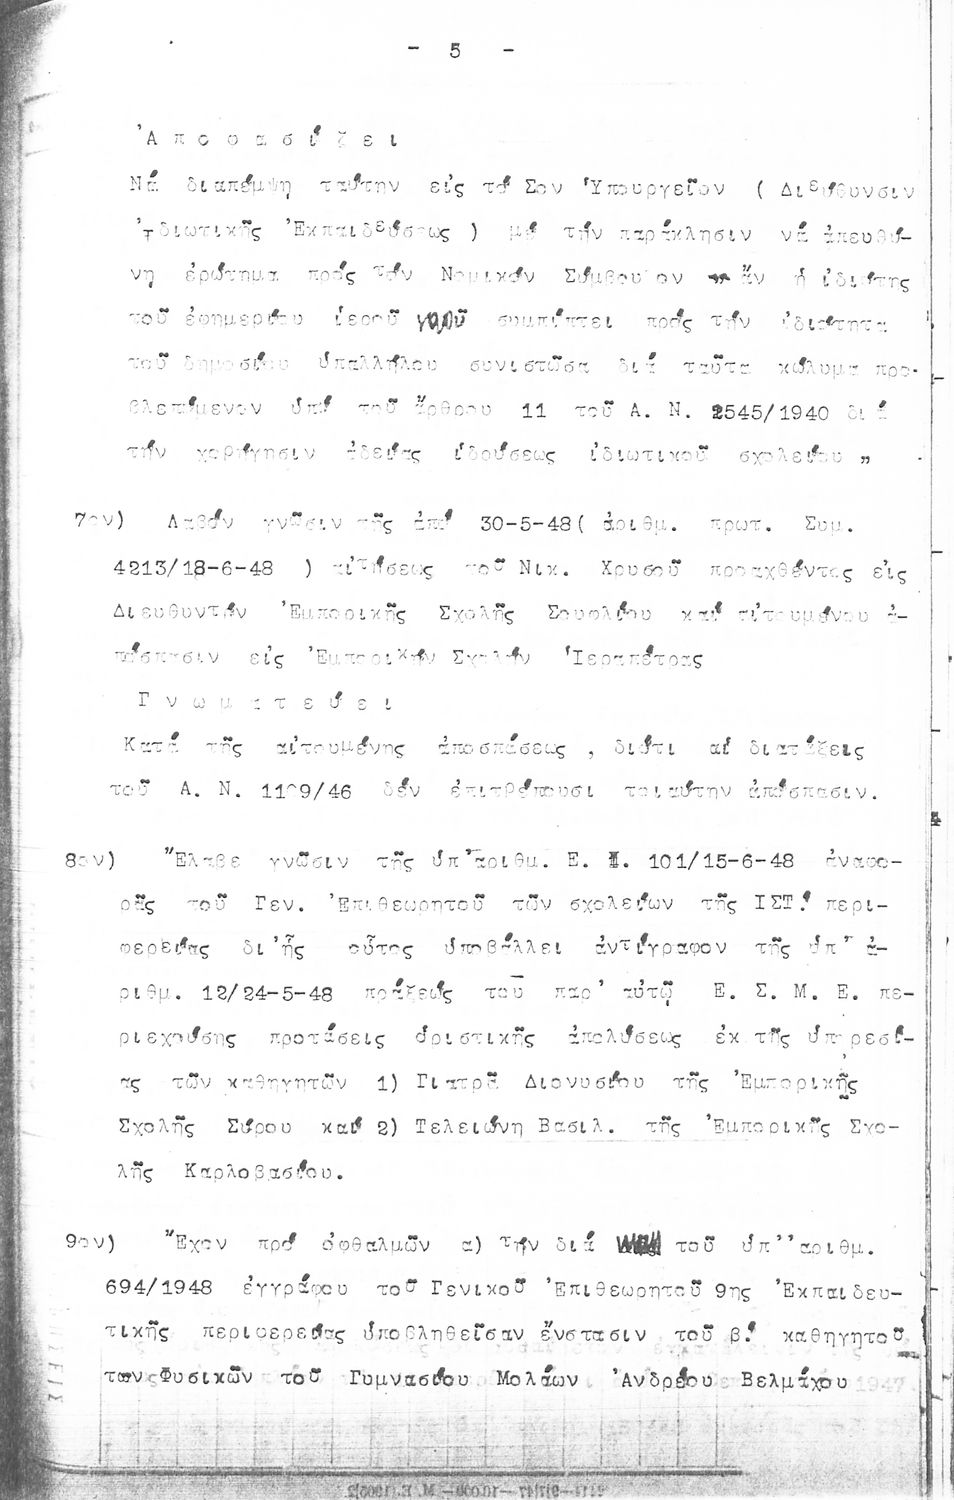 - 5 -
Ἀ π ο φ α σ ί ζ ε ι
Νά διαπέμψη ταύτην εἰς τό Σον Ὑπουργεῖον ( Διεύθυνσιν
Ἰδιωτικῆς Ἐκπαιδεύσεως ) μέ τήν παράκλησιν νά ἀπευθύ-
νη ἐρώτημα πρός τόν Νομικόν Σύμβουλον ἄν ἡ ἰδιότης
τοῦ ἐφημερίου ἱεροῦ ναοῦ συμπίπτει πρός τήν ἰδιότητα
τοῦ δημοσίου ὑπαλλήλου συνιστῶσα διά ταῦτα κώλυμα προ-
βλεπόμενον ὑπό τοῦ ἄρθρου 11 τοῦ Α. Ν. 2545/1940 διά
τήν χορήγησιν ἀδείας ἱδρύσεως ἰδιωτικοῦ σχολείου "
7ον) Λαβόν γνῶσιν τῆς ἀπό 30-5-48( ἀριθμ. πρωτ. Συμ.
4213/18-6-48 ) αἰτήσεως τοῦ Νικ. Χρυσοῦ προαχθέντος εἰς
Διευθυντήν Ἐμπορικῆς Σχολῆς Σουφλίου καί αἰτουμένου ἀ-
πόσπασιν εἰς Ἐμπορικήν Σχολήν Ἱεραπέτρας
Γ ν ω μ α τ ε ύ ε ι
Κατά τῆς αἰτουμένης ἀποσπάσεως , διότι αἱ διατάξεις
τοῦ Α. Ν. δέν ἐπιτρέπουσι τοιαύτην ἀπόσπασιν.
8ον) Ἔλαβε γνῶσιν τῆς ὑπ'ἀριθμ. Ε. Π. 101/15-6-48 ἀναφο-
ρᾶς τοῦ Γεν. Ἐπιθεωρητοῦ τῶν σχολείων τῆς ΙΣΤ! περι-
φερείας δι'ἧς οὗτος ὑποβάλλει ἀντίγραφον τῆς ὑπ' ἀ-
ριθμ. 12/24-5-48 πράξεώς τοῦ παρ' αὐτῷ Ε. Σ. Μ. Ε. πε-
ριεχούσης προτάσεις ὁριστικῆς ἀπολύσεως ἐκ τῆς ὑπηρεσί-
ας τῶν καθηγητῶν 1) Γιατρᾶ Διονυσίου τῆς Ἐμπορικῆς
Σχολῆς Σύρου καί 2) Τελειώνη Βασιλ. τῆς Ἐμπορικῆς Σχο-
λῆς Καρλοβασίου.
9ον) Ἔχον πρό ὀφθαλμῶν α) τήν διά τοῦ ὑπ''αριθμ.
694/1948 ἐγγράφου τοῦ Γενικοῦ Ἐπιθεωρητοῦ 9ης Ἐκπαιδευ-
τικῆς περιφερείας ὑποβληθεῖσαν ἔνστασιν τοῦ β! καθηγητοῦ
των Φυσικῶν τοῦ Γυμνασίου Μολάων Ἀνδρέου Βελμάχου